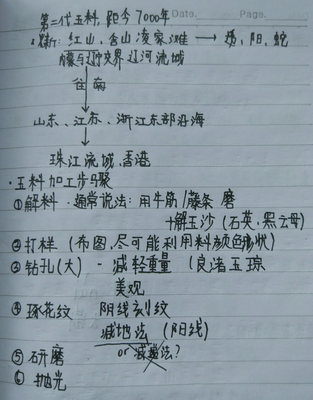 第二代玉料,距今7000年
Date.
Page.
红山,含山凌家滩 → 鸮,阳,蛇
内蒙与辽宁交界 辽河流域
往南
山东、江苏、浙江东部沿海
珠江流域,香港
·玉料加工步骤
①解料·通常说法:用牛筋/藤条 磨
+解玉沙(石英,黑云母)
②打样(布图,尽可能利用料颜色形状)
③钻孔(大)-减轻重量(良渚玉琮
美观
④琢花纹 阴线刻纹
减地法(阳线)
or 减地法?
⑤研磨
⑥抛光